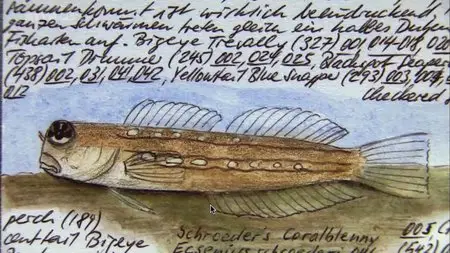 zusammenkommt ist wirklich beeindruckend,
ganzen Schwärmen treten gleich ein halbes Dutzen
Fischarten auf. Bigeye Trevally (327) 001,014-018, 020
Topsail Drummer (245) 002, 024, 025, Blackspot Sergeant
(438) 002, 031, 041, 042, Yellowtail Blue Snapper (293) 003, 009,
012 Checkered
perch (184)
centtail Bigeye
Schroeder's Coralblenny 005
Ecsenius schroederi (542)